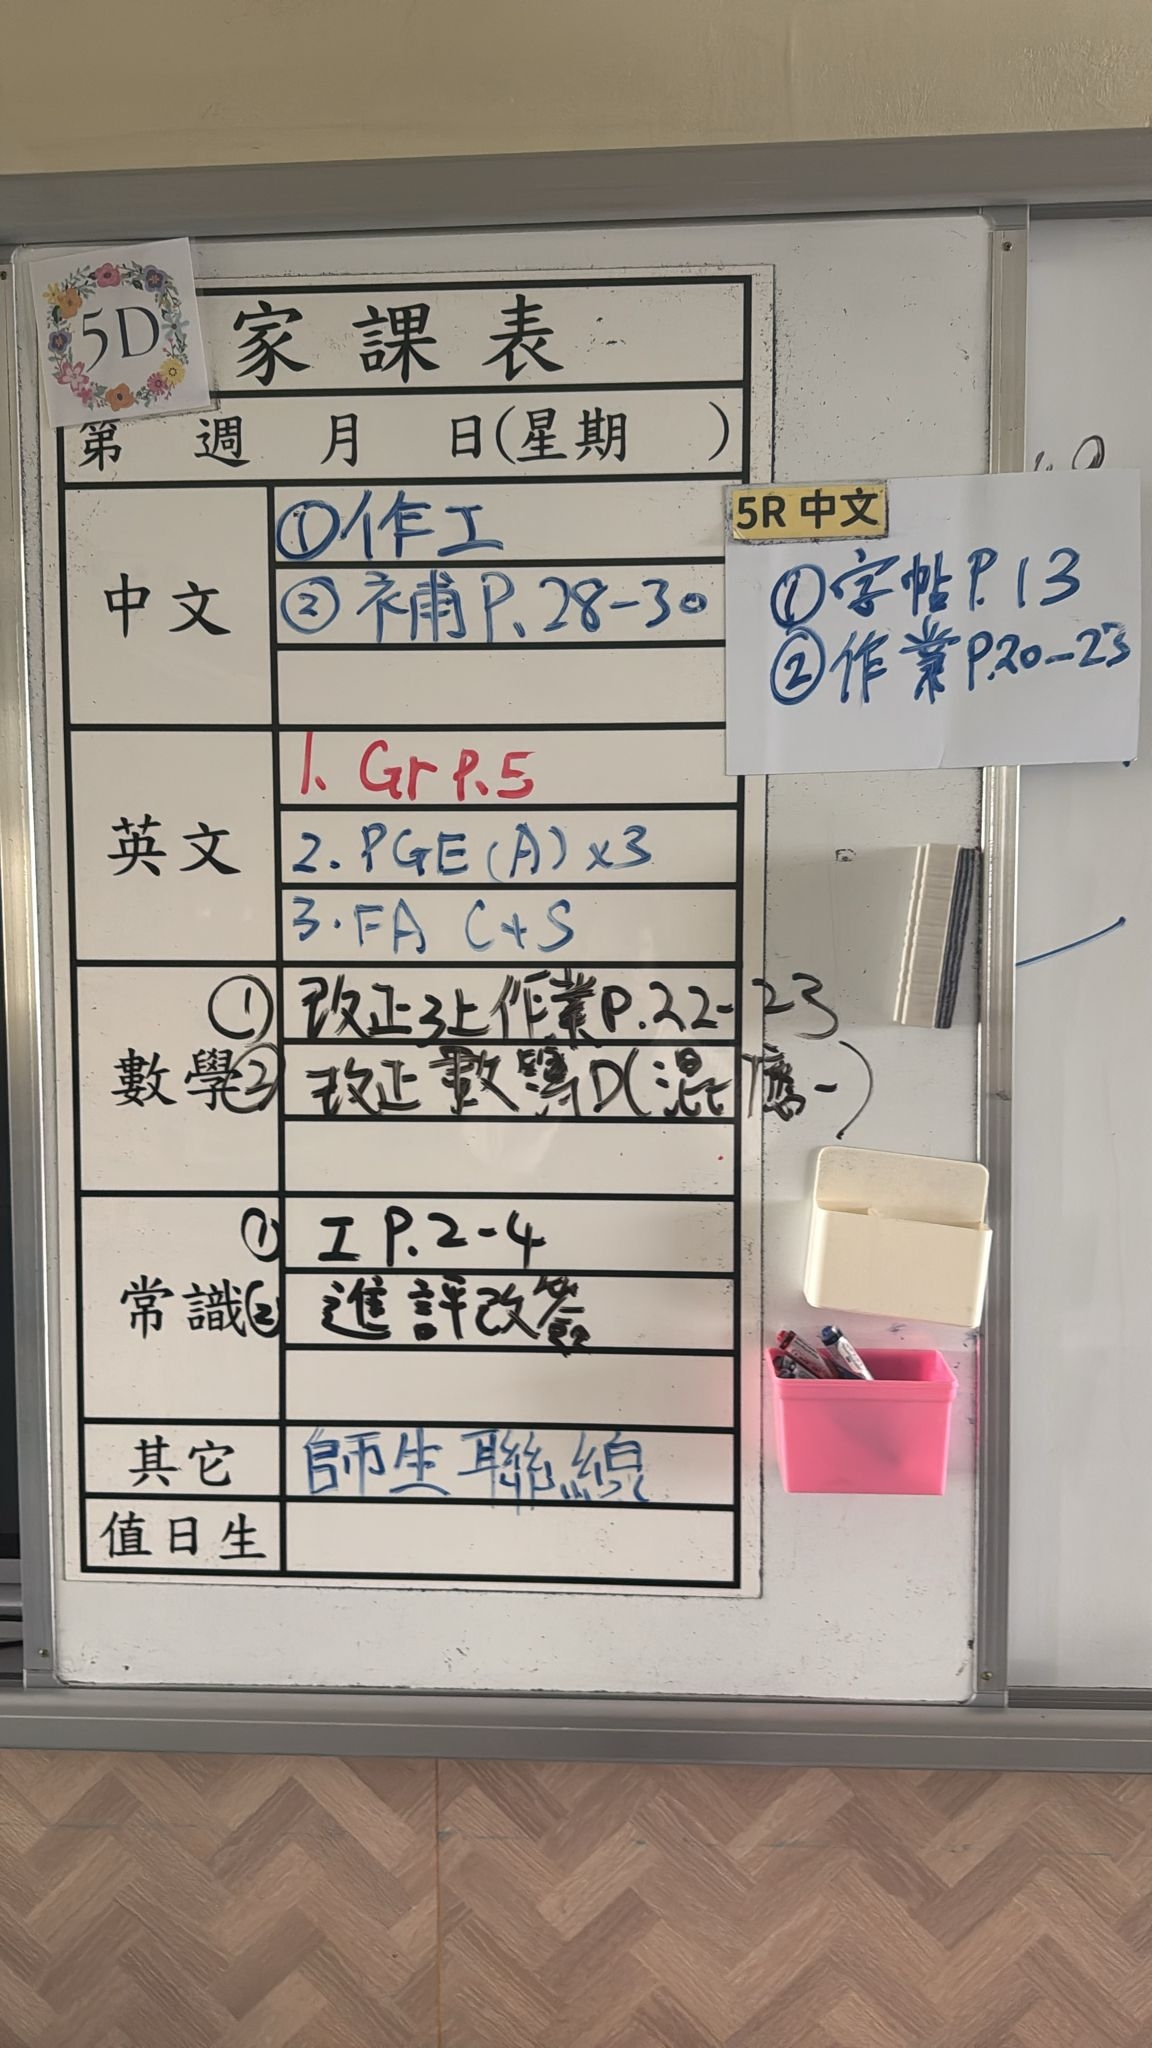 5D
家課表
第 週 月 日(星期 )
中文
①作工
②補P.28-30
5R 中文
①字帖P.13
②作業P.20-23
英文
1. Gr P.5
2. PGE(A)x3
3. FA C+S
數學
① 改正3上作業P.22-23
② 改正數簿D(混應一)
常識
① 工P.2-4
② 進評改簽
其它
師生聯線
值日生